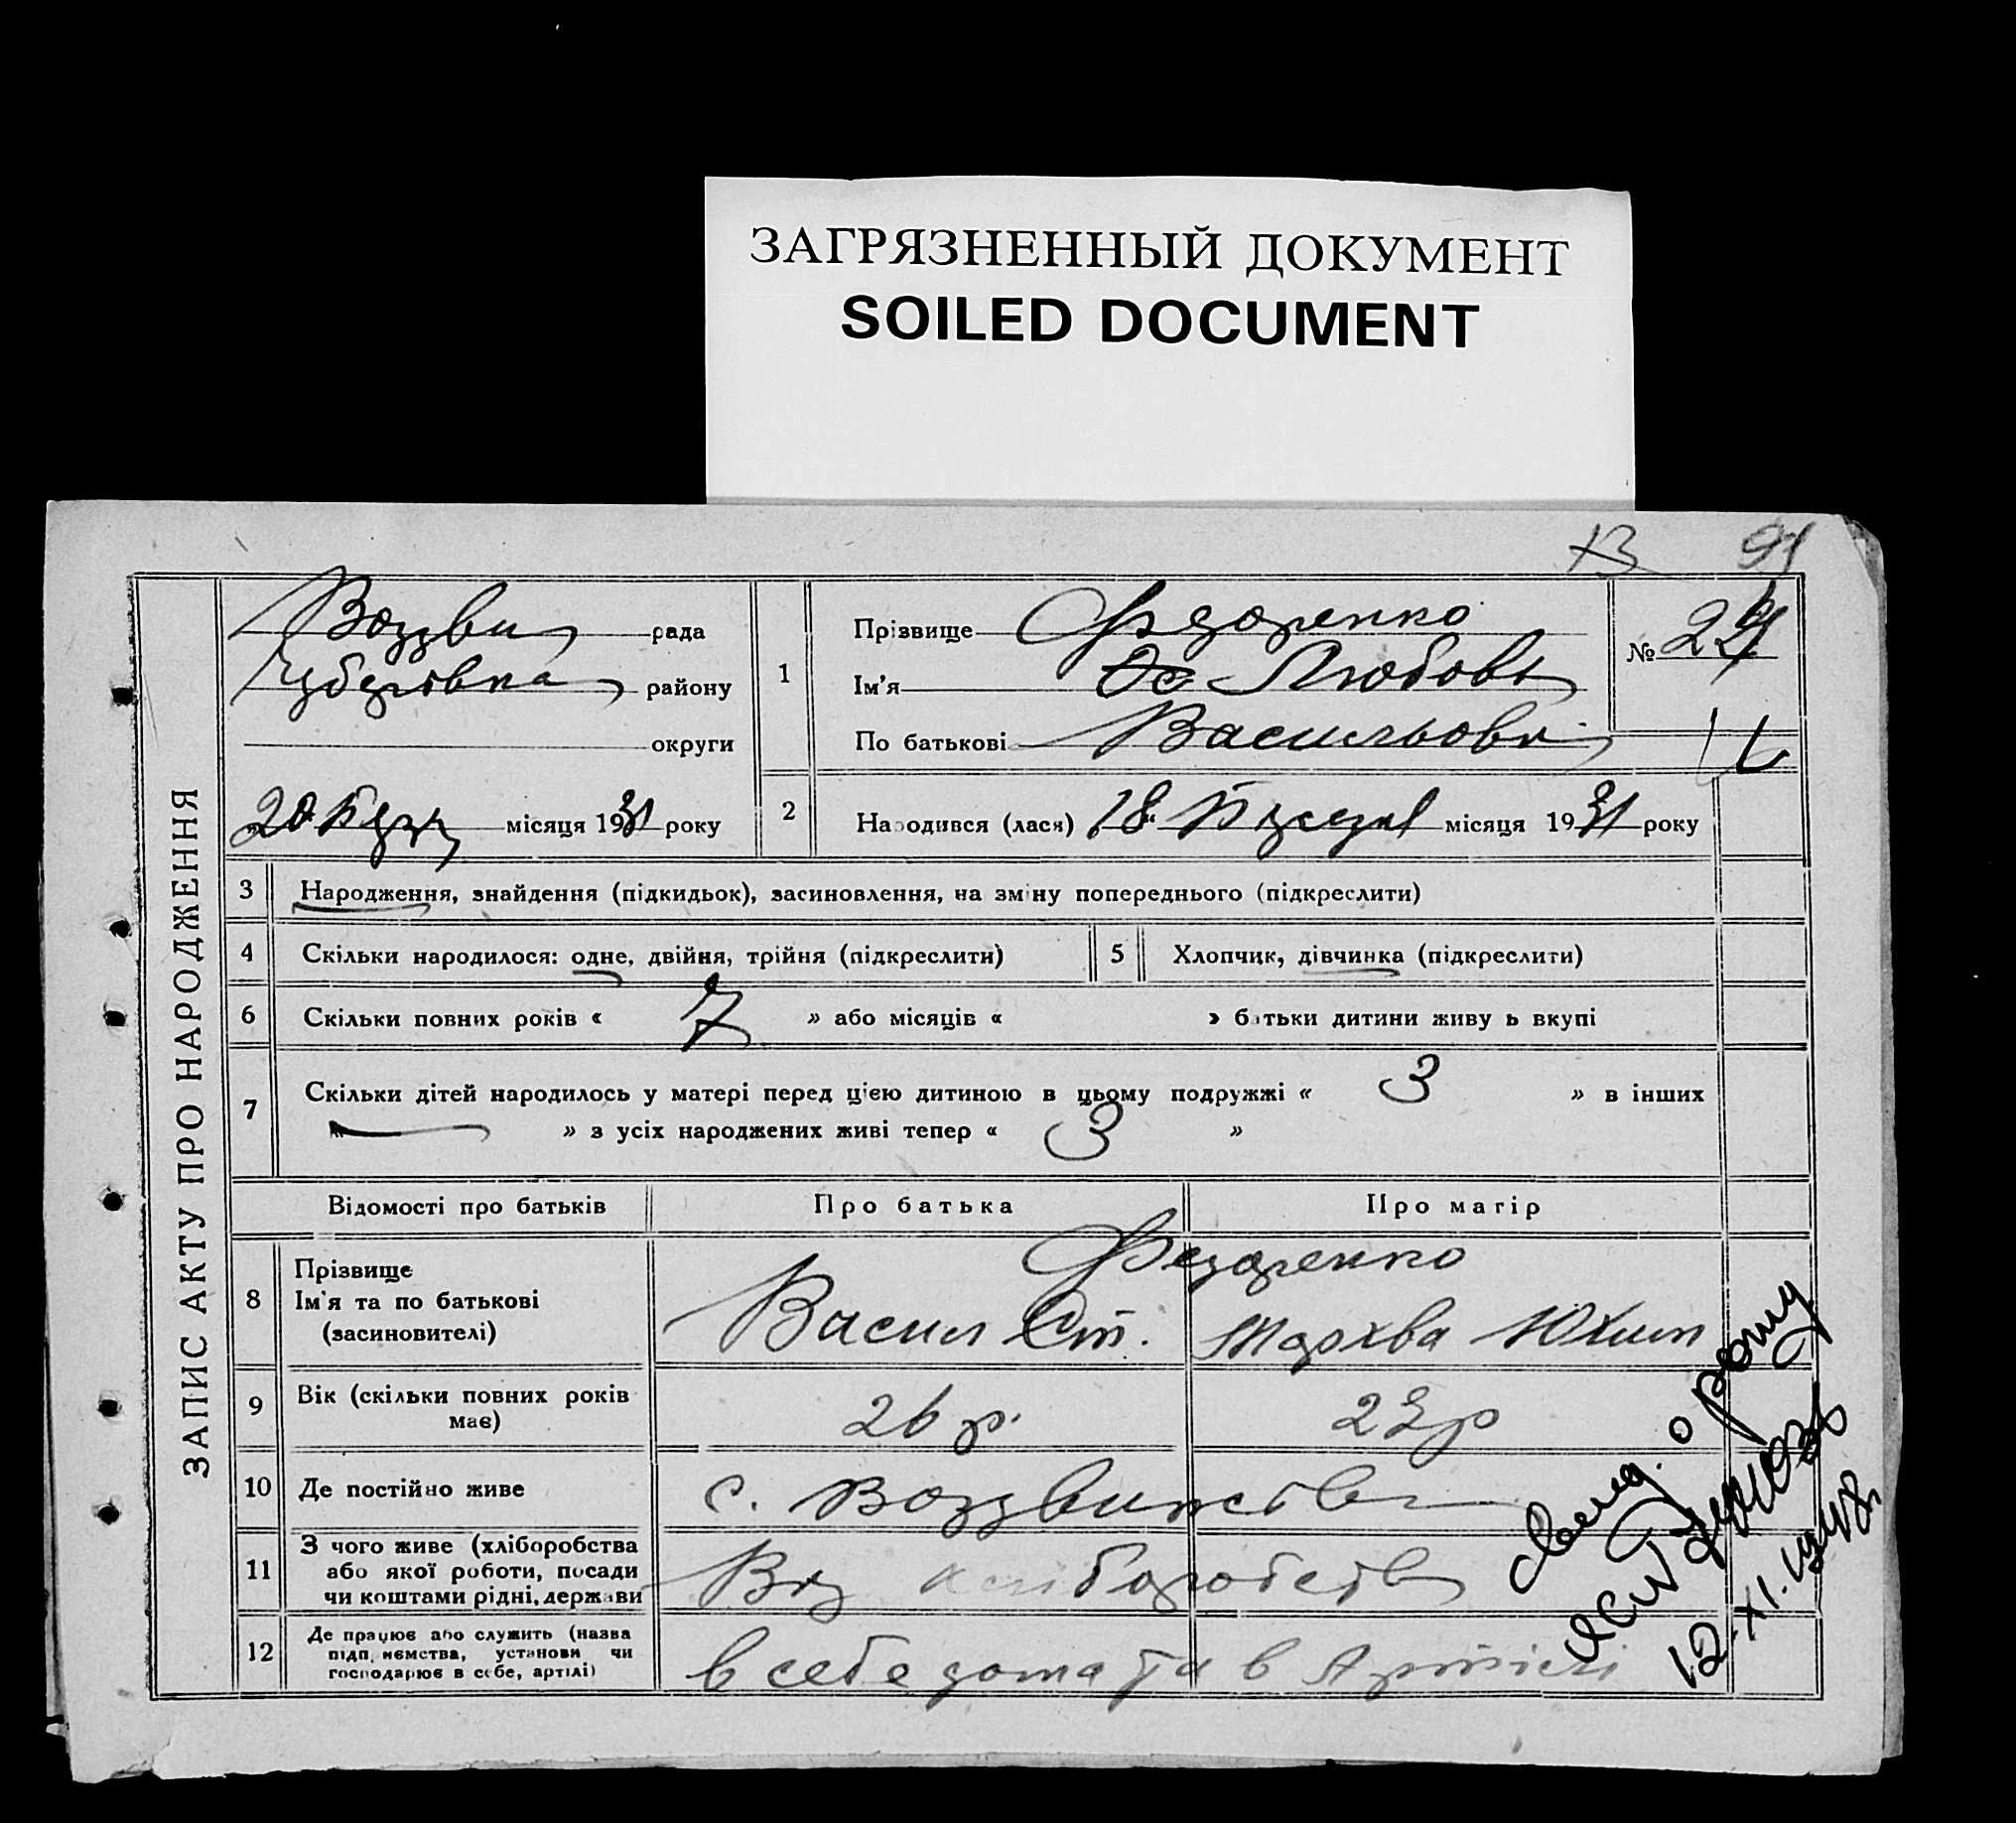 ЗАГРЯЗНЕННЫЙ ДОКУМЕНТ
SOILED DOCUMENT
13
ЗАПИС АКТУ ПРО НАРОДЖЕННЯ
рада
району
округи
20 місяця 1931 року
1
Прізвище Федоренко
Ім'я Любовь
По батькові Васильовн
№
2
Народився (лася) 18 місяця 1931 року
3 Народження, знайдення (підкидьок), засиновлення, на зміну попереднього (підкреслити)
4 Скільки народилося: одне, двійня, трійня (підкреслити)
5 Хлопчик, дівчинка (підкреслити)
6 Скільки повних років « 7 » або місяців « » батьки дитини живуть вкупі
7 Скільки дітей народилось у матері перед цією дитиною в цьому подружжі « 3 » в інших
« — » з усіх народжених живі тепер « 3 »
Відомості про батьків
Про батька
Про матір
8 Прізвище
Ім'я та по батькові
(засиновителі)
Федоренко
Васил Ст.
Мархва Юхим
9 Вік (скільки повних років
має)
26 р.
23 р
10 Де постійно живе
с. Воздвинств
11 З чого живе (хліборобства
або якої роботи, посади
чи коштами рідні, держави
Від хліборобств
12 Де працює або служить (назва
підприємства, установи чи
господарює в себе, артілі)
в себе дома та в Артілі
12.XI.1948